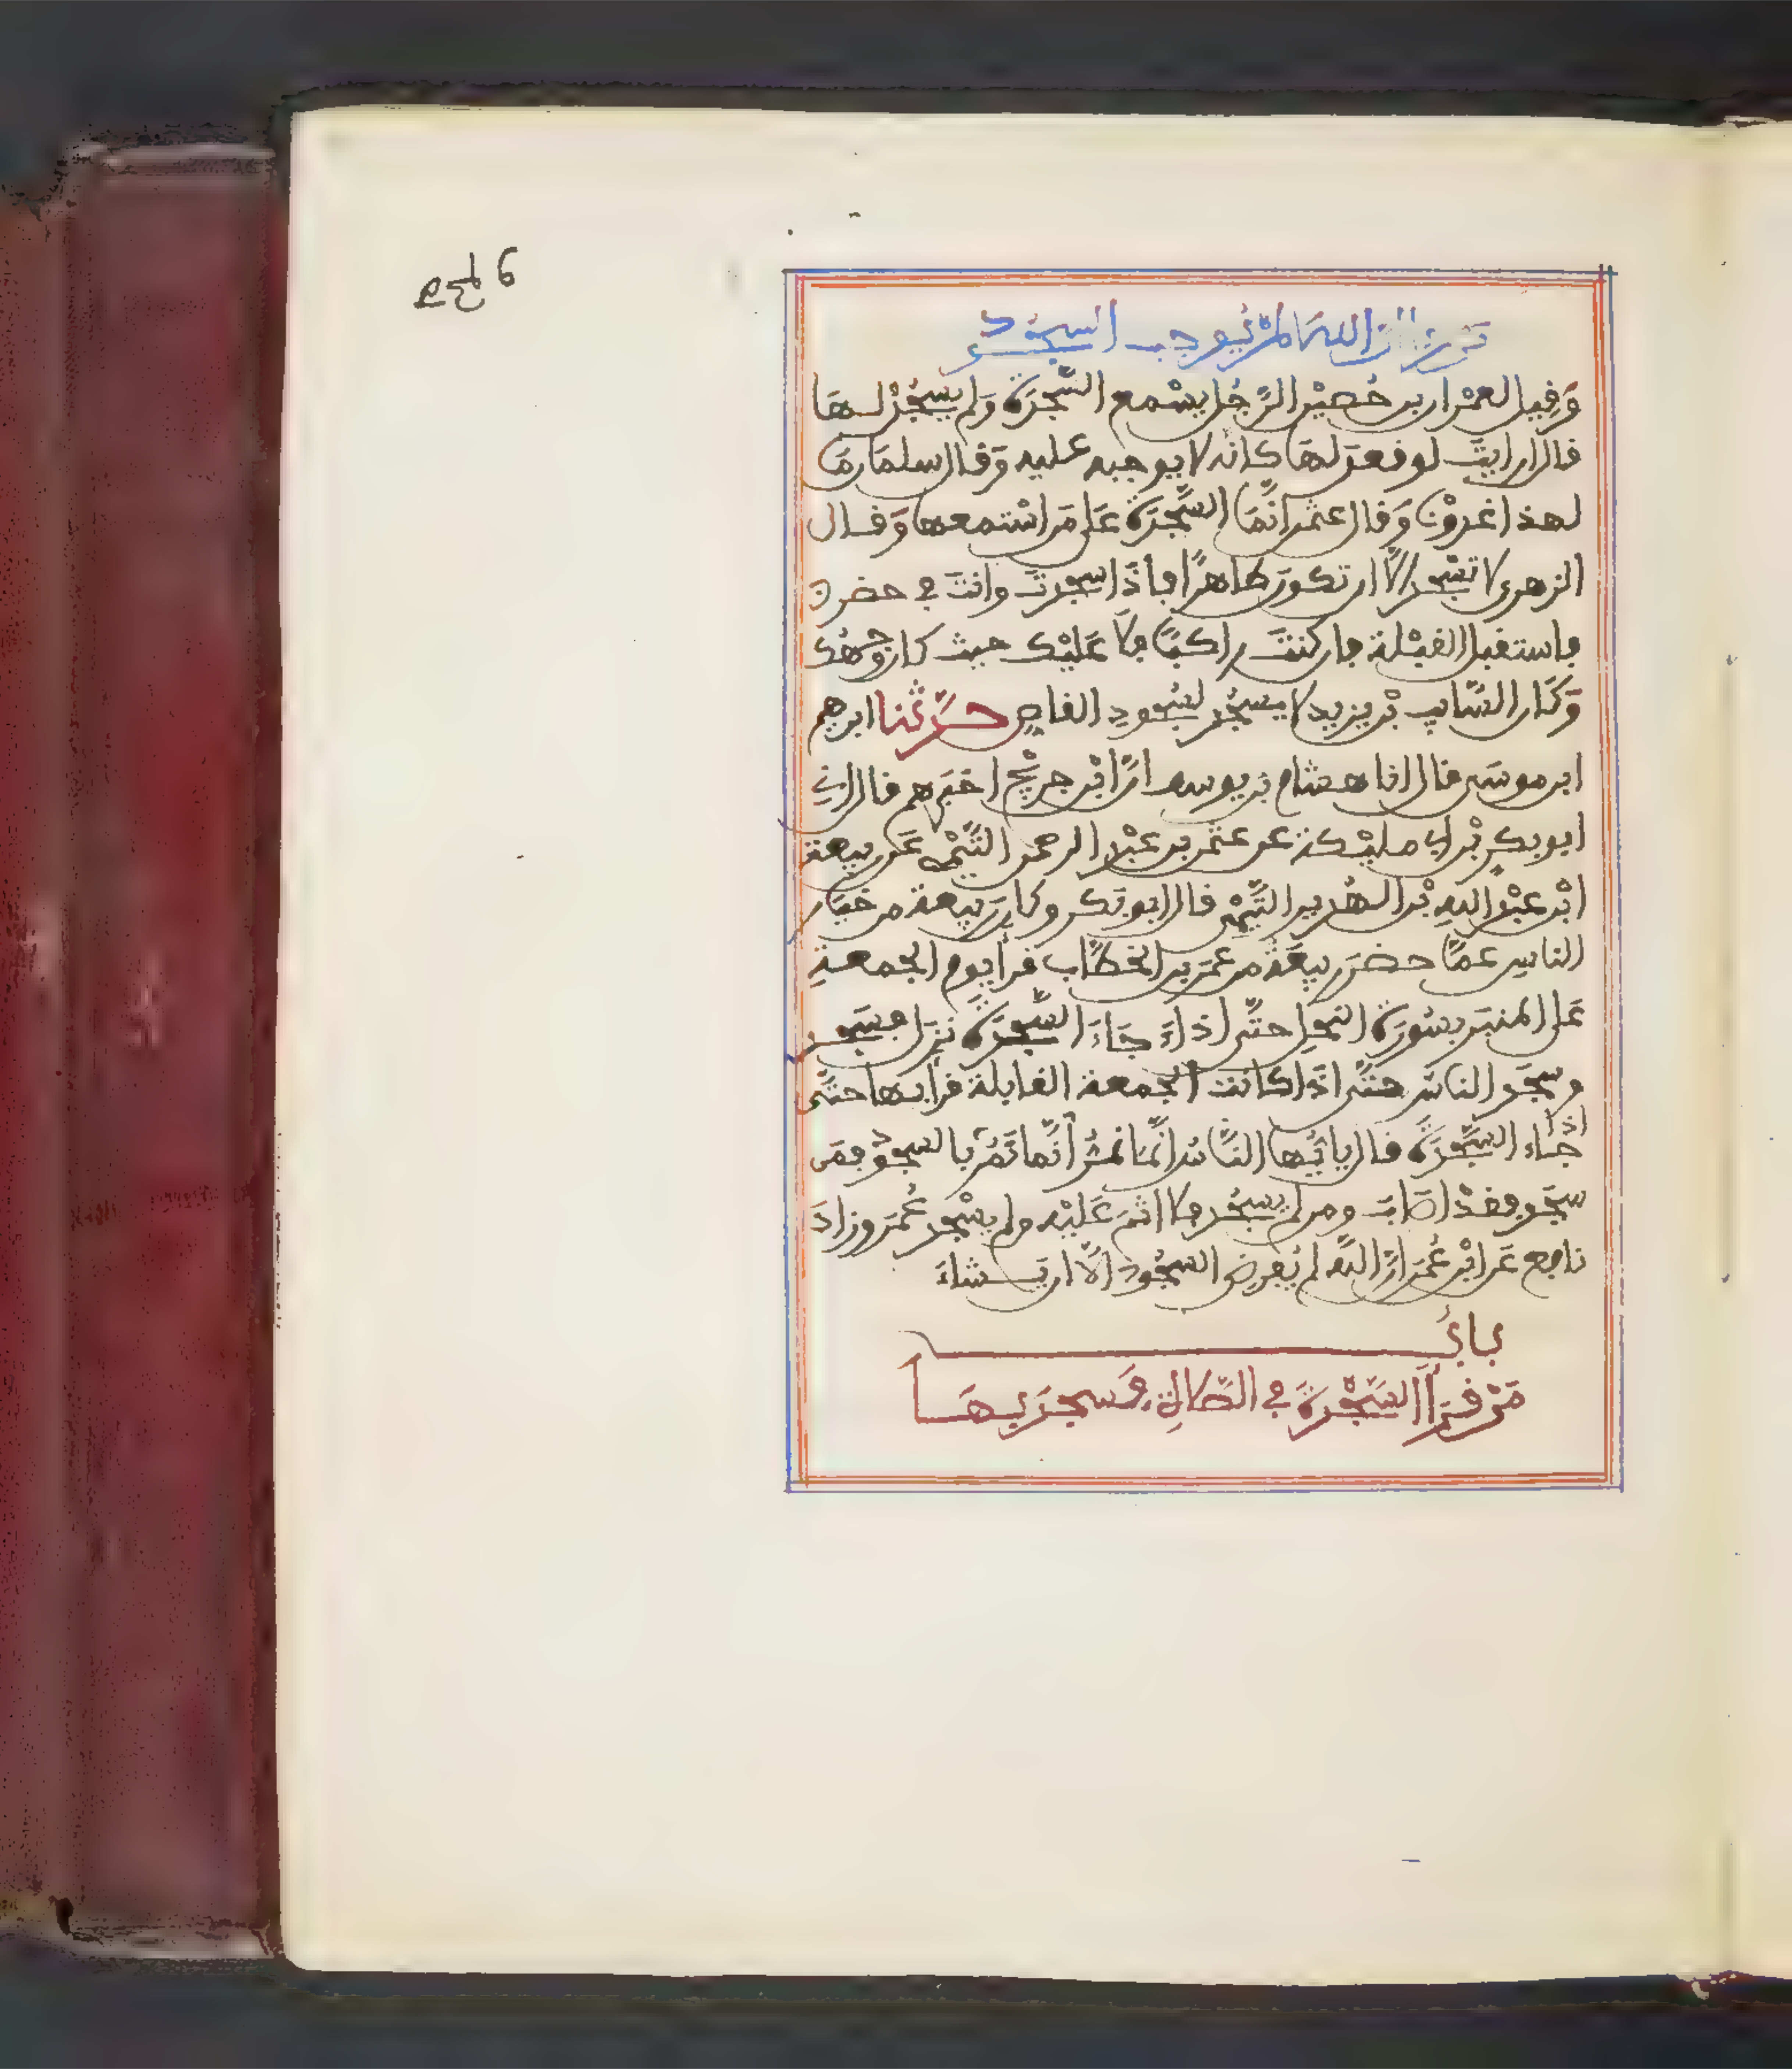 من رأى أن الله لم يوجب السجود
وَقيل لعمران بن حُصَيْن الرّجُل يسْمع السّجْدَة وَلم يسجُدْ لـها
قال ارايتَ لو قعدَ لهَا كانه لا يوجبه عليه وَقال سلمَان مَا
لهذا غدوْنا وَقال عثمن انّمَا السَّجْدَة عَلى مَن اسْتمعها وَقـال
الزهري لا تسْجد الّا ان تكونَ طاهرًا فاذَا سجدتَ وانتَ في حضر
فاستقبل القبْلة فان كنتَ راكبًا فلا عَليْك حيث كان وجهُك
وَكَان السّايب بْن يزيد لا يسجُد لسُجودِ القاصِ حدّثنا ابرهيم
ابن موسَى قال انا هشام بن يوسف انّ ابْن جريْج اخبَرهم قال اني
ابو بكر بْن ابي مليْكة عن عثمن بن عبْد الرحمن التّيْمي عَن ربيعة
ابْن عبْد اللهِ بْن الهُدير التّيْمي قال ابو بَكر وكان رَبيعة من خيَار
الناسِ عمّا حضرَ ربيعَةُ من عمَر بن الخطّاب قرأ يوم الجمعـةِ
عَلى المنبَر بسُورَة النحْلِ حتّى اذا جَاءَ السّجْدَة نزَل فسَجـد
وسجَد الناسُ حتّى اذَا كانت الجمعة القابلة قرأ بـها حتّى
اذا جَاء السّجْدَةَ قال يا ايّها النّاسُ انّمَا نمُرّ انّما نَمُرّ بالسجُود فمَن
سجَد فقدْ اصَابَ ومن لم يسجُد فلا اثمَ عَليْه ولم يسْجد عُمَر وزادَ
نافع عَن ابْن عُمَر انّ اللهَ لم يُفرض السجُود الّا ان نـشاءَ
بابُ
مَنْ قرَأ السّجْدَةَ في الصّلاةِ وَسجدَ بـهَـا